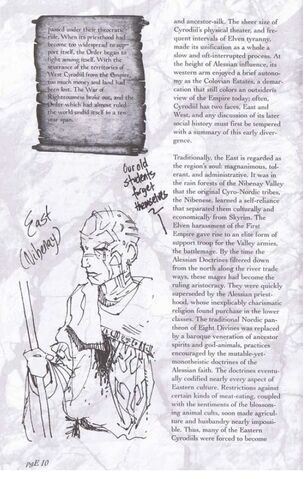 passed under their theocratic
rule. When its priesthood had
become too widespread to sup-
port itself, the Order began to
fight among itself. With the
severance of the territories of
West Cyrodiil from the Empire,
too much money and land had
been lost. The War of
Righteousness broke out, and the
Order which had almost ruled
the world undid itself in a ten
year span.
Our old
students
forget
themselves
East
(Nibenay)
and ancestor-silk. The sheer size of
Cyrodiil's physical theater, and fre-
quent intervals of Elven tyranny,
made its unification as a whole a
slow and oft-interrupted process. At
the height of Alessian influence, its
western arm enjoyed a brief autono-
my as the Colovian Estates, a demar-
cation that still colors an outsider's
view of the Empire today; often,
Cyrodiil has two faces, East and
West, and any discussion of its later
social history must first be tempered
with a summary of this early diver-
gence.
Traditionally, the East is regarded as
the region's soul: magnanimous, tol-
erant, and administrative. It was in
the rain forests of the Nibenay Valley
that the original Cyro-Nordic tribes,
the Nibenese, learned a self-reliance
that separated them culturally and
economically from Skyrim. The
Elven harassment of the First
Empire gave rise to an elite form of
support troop for the Valley armies,
the battlemage. By the time the
Alessian Doctrines filtered down
from the north along the river trade
ways, these mages had become the
ruling aristocracy. They were quickly
superseded by the Alessian priest-
hood, whose inexplicably charismatic
religion found purchase in the lower
classes. The traditional Nordic pan-
theon of Eight Divines was replaced
by a baroque veneration of ancestor
spirits and god-animals, practices
encouraged by the mutable-yet-
monotheistic doctrines of the
Alessian faith. The doctrines eventu-
ally codified nearly every aspect of
Eastern culture. Restrictions against
certain kinds of meat-eating, coupled
with the sentiments of the blossom-
ing animal cults, soon made agricul-
ture and husbandry nearly impossi-
ble. Thus, many of the Eastern
Cyrodiils were forced to become
pgE 10